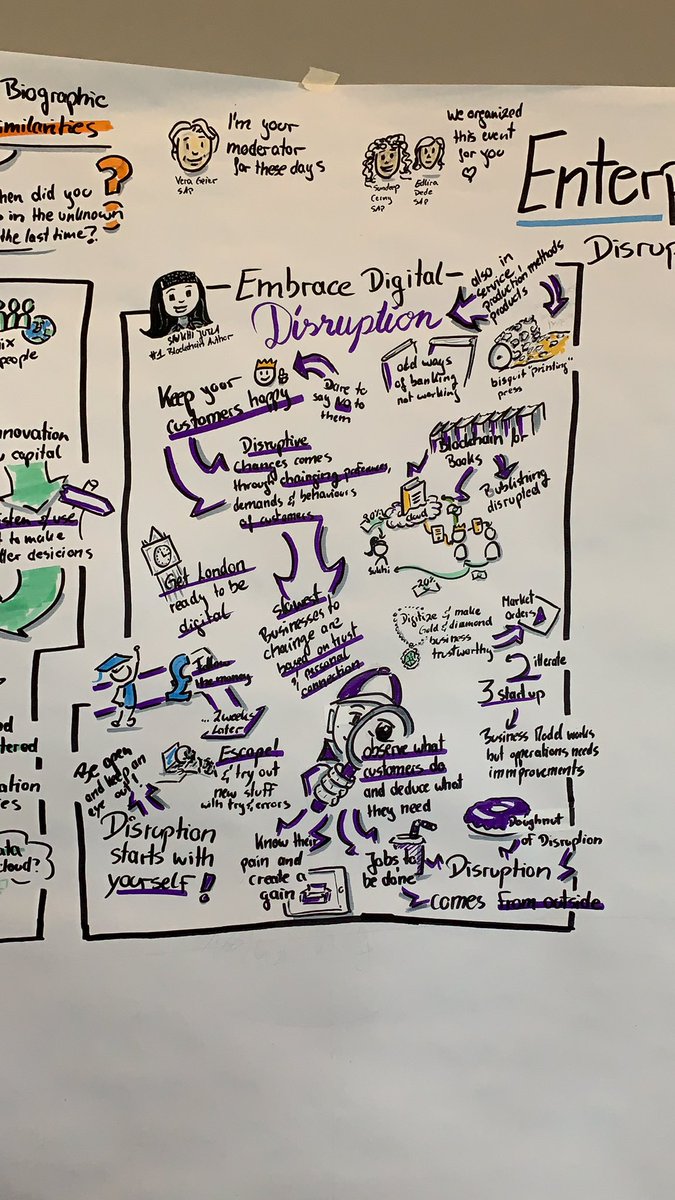 Biographic
I'm your
moderator
for these days
Vera Geier
SAP
We organized
this event
for you
Sundeep
SAP
Edlira
Dede
SAP
Enterp
Disrup
When did you
in the unknown
the last time?
people
innovation
capital
to make
Embrace Digital
Disruption
#1 Blockchain Author
also in
service
production methods
products
bisquit "printing"
press
old ways
of banking
not working
Keep your
customers happy
Dare to
say NO to
them
Disruptive
changes comes
through chainging preferences,
demands & behaviours
of customers
Blockchain for
Books
Publishing
disrupted
cloud
80%
Sukhi
20%
Get London
ready to be
digital
slowest
Businesses to
chainge are
based on trust
& personal
connection
Digitize & make
Gold & diamond
business
trustworthy
Market
orders
2 illerate
3 start up
Business Model works
but operations needs
immprovements
Follow
the money
... 2 weeks
later
Escape!
& try out
new stuff
with try & errors
observe what
customers do
and deduce what
they need
Be open
and keep an
eye out!
Disruption
starts with
yourself!
Know their
pain and
create a
gain
Jobs to
be done
Doughnut
of Disruption
Disruption
comes from outside
cloud?